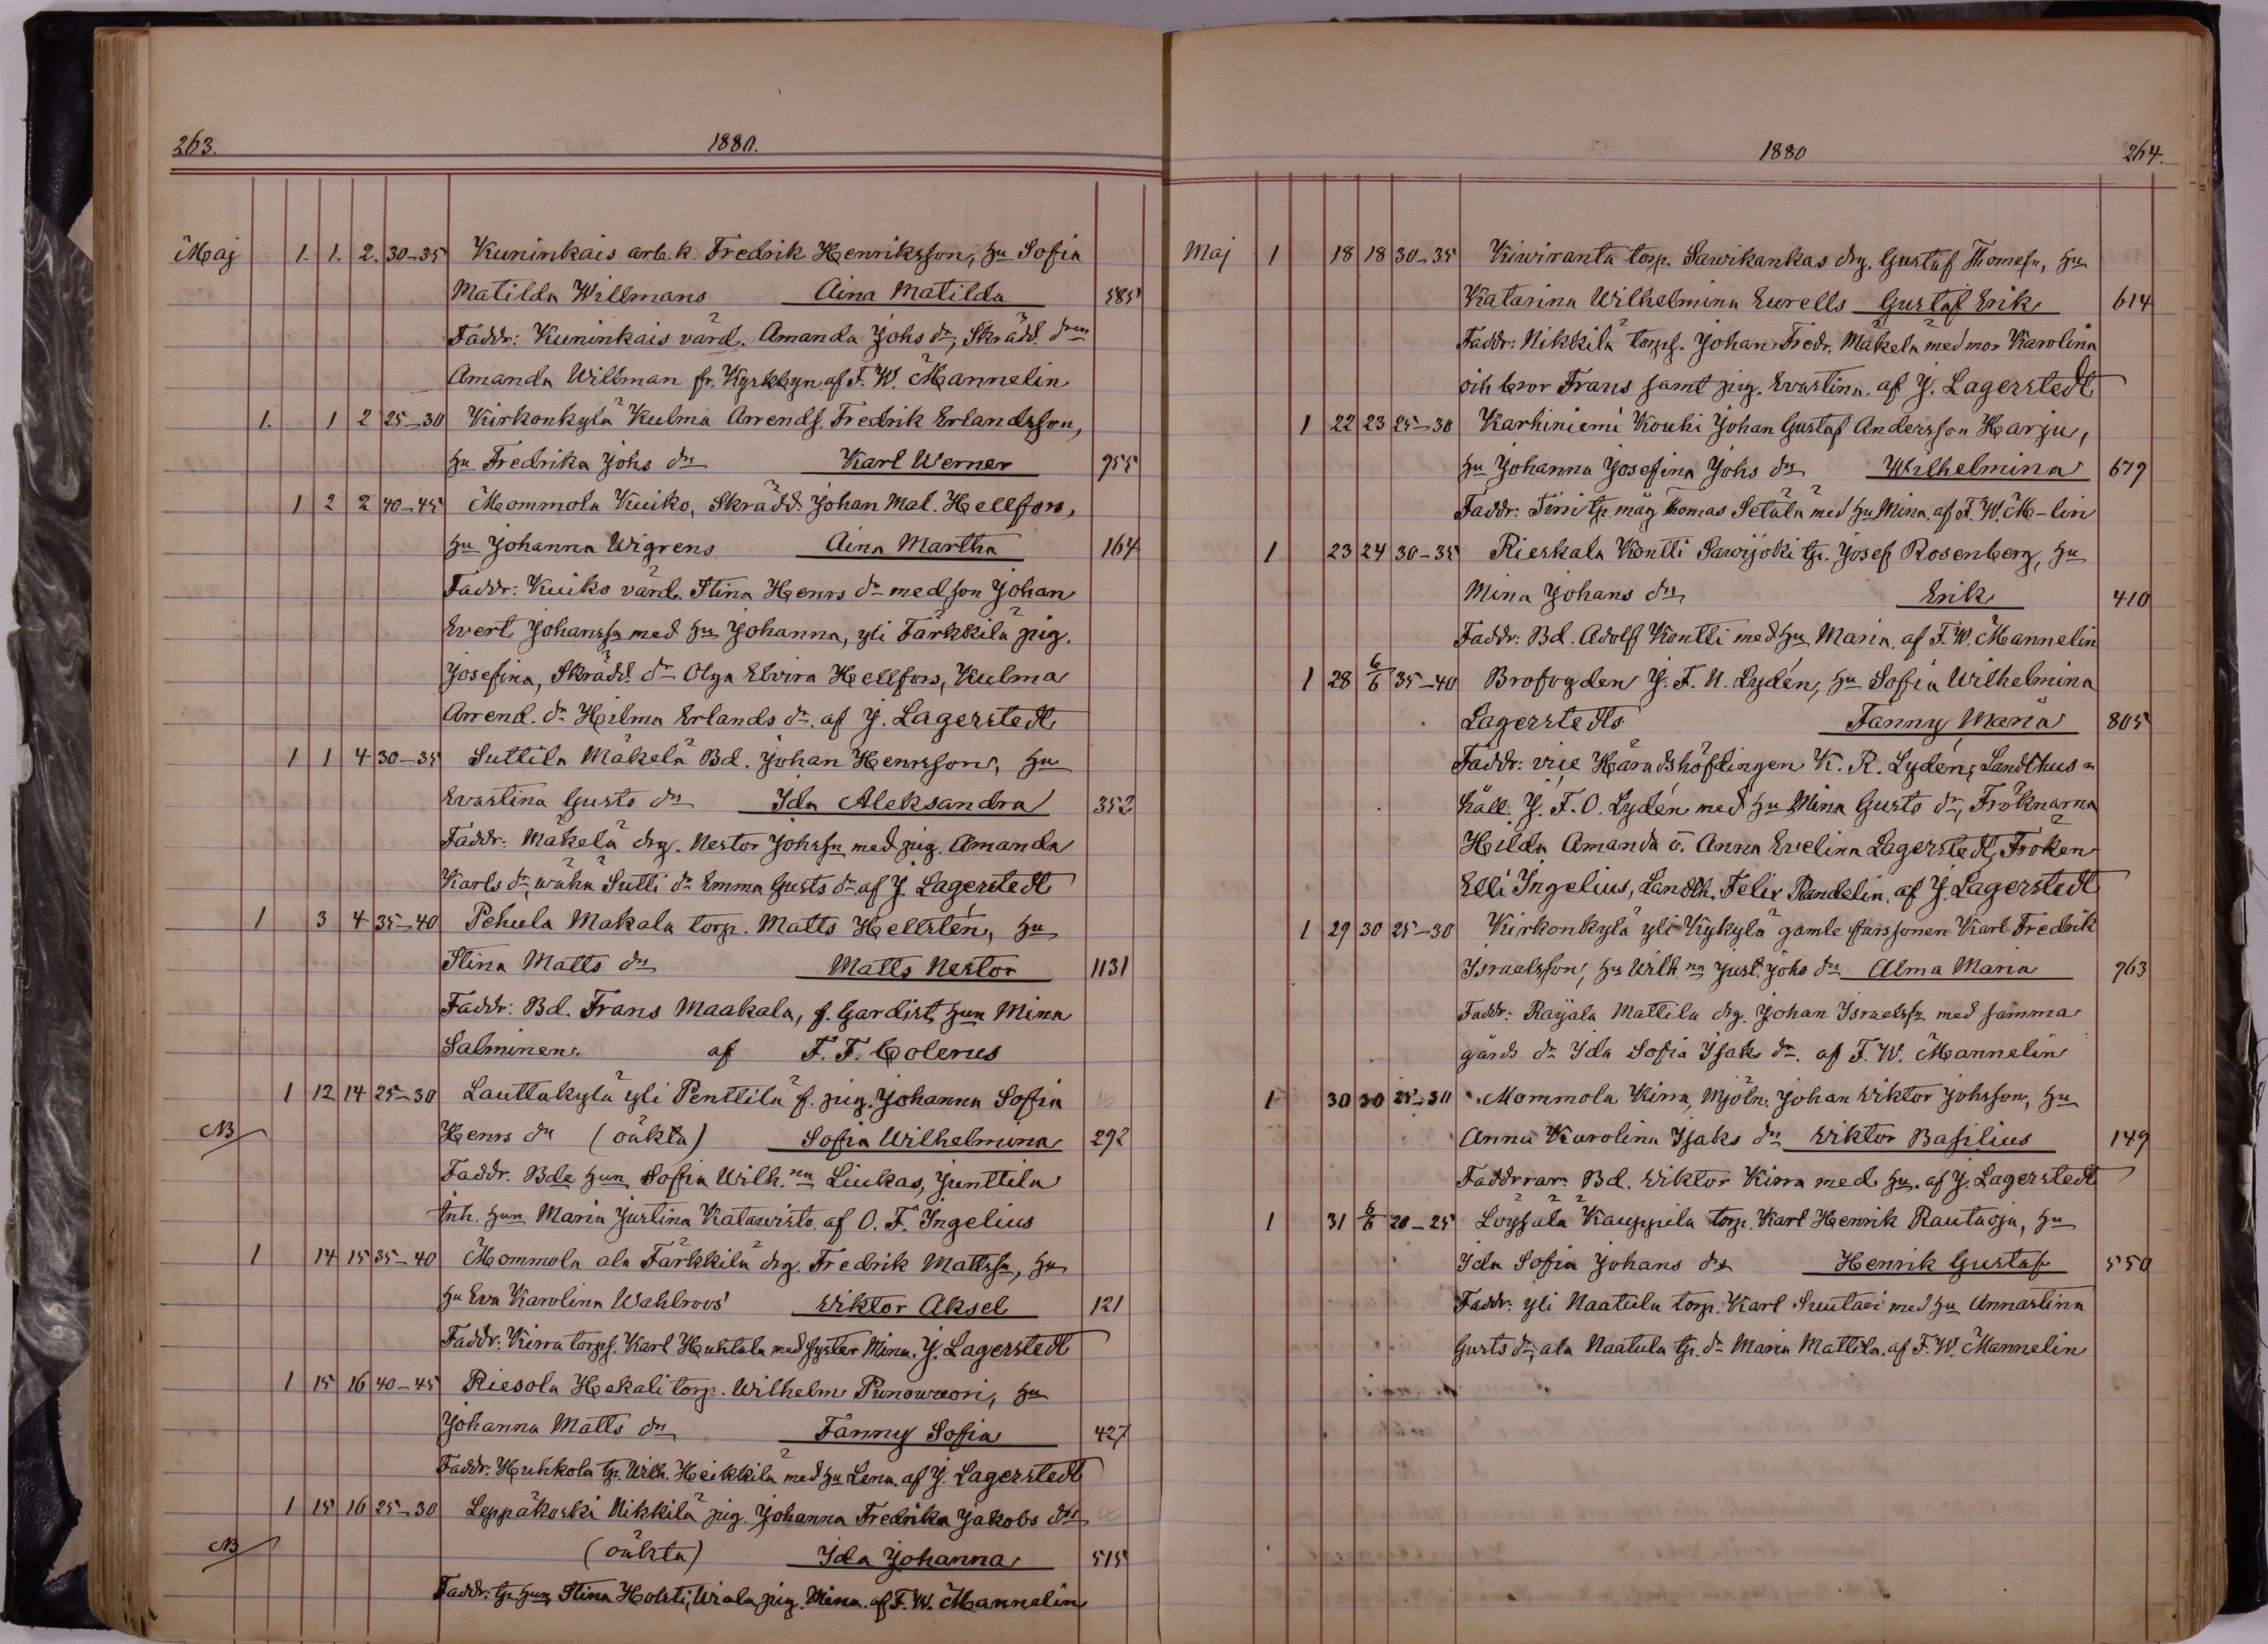 263. 1880.
Maj 1. 1. 2. 30-35 Kuninkais arb. k. Fredrik Henriksson, hu Sofia
Matilda Willmans Aina Matilda 585
Faddr: Kuninkais värd. Amanda Johs dr, Skrädd. drn
Amanda Willman fr. Kyrkbyn af F. W. Mannelin
1. 1 2 25-30 Kirkonkylä Kulma Arrends. Fredrik Erlandsson,
hu Fredrika Johs dr Karl Werner 955
1 2 2 40-45 Mommola Kuiko, Skrädd. Johan Mat. Hellfors,
hu Johanna Wigrens Aina Martha 164
Faddr: Kuiko värd. Stina Henrs dr med son Johan
Evert Johanssn med hu Johanna, yli Tärkkilä pig.
Josefina, Skrädd. dr Olga Elvira Hellfors, Kulma
Arrend. dr Hilma Erlands dr. af J. Lagerstedt
1 1 4 30-35 Suttila Mäkelä Bd. Johan Henrsson, hu
Evastina Gusts dr Ida Aleksandra 352
Faddr: Mäkelä drg. Nestor Johssn med pig. Amanda
Karls dr, wähä Sutti dr Emma Gusts dr af J. Lagerstedt
1 3 4 35-40 Pehula Makala torp. Matts Hellstén, hu
Stina Matts dr Matts Nestor 1131
Faddr: Bd. Frans Maakala, f. Gardist hun Mina
Salminen. af F. F. Colerus
1 12 14 25-30 Lauttakylä yli Penttilä f. pig. Johanna Sofia
NB Henrs dr (oäkta) Sofia Wilhelmina 292
Faddr. Bde hun Sofia Wilh.na Liukas, Junttila
inh. hun Maria Justina Katawisto. af O. F. Ingelius
1 14 15 35-40 Mommola ala Tärkkilä drg. Fredrik Mattssn, hu
hu Eva Karolina Wahlroos' Wiktor Aksel 121
Faddr. Kirra torps. Karl Huhtala med syster Mina. J. Lagerstedt
1 15 16 40-45 Riesola Hakali torp. Wilhelm Punowuori, hu
Johanna Matts dr Fanny Sofia 427
Faddr. Huhkola tp. Wilh. Heikkilä med hu Lena. af J. Lagerstedt
1 15 16 25-30 Leppäkoski Nikkilä pig. Johanna Fredrika Jakobs dr
NB (oäkta) Ida Johanna 515
Faddr: tp. hun Stina Holsti, Uiala pig. Mina. af F. W. Mannelin
1880 264.
Maj 1 18 18 30-35 Kiwiranta torp. Sawikankas drg. Gustaf Thomesn, hu
Katarina Wilhelmina Eurells Gustaf Erik 614
Faddr: Nikkilä torps. Johan Fredr. Mäkelä med mor Karolina
och bror Frans samt pig. Evastina. af J. Lagerstedt
1 22 23 25-30 Karhiniemi Kouhi Johan Gustaf Andersson Harju,
hu Johanna Josefina Johs dr Wilhelmina 679
Faddr: Tirri tp. måg Thomas Setälä med hu Mina. af F. W. M-lin
1 23 24 30-35 Rieskala Kontti Sawijoki tp. Josef Rosenberg, hu
Mina Johans dr Erik 410
Faddr: Bd. Adolf Kontti med hu Maria. af F. W. Mannelin
1 28 6/6 35-40 Brofogden J. F. N. Lydén, hu Sofia Wilhelmina
Lagerstedts Fanny Maria 805
Faddr: vice Häradshöfdingen K. R. Lydén, Landthus-
håll. J. F. O. Lydén med hu Mina Gusts dr, Fröknarna
Hilda Amanda o. Anna Evelina Lagerstedt, Fröken
Elli Ingelius, Landth. Felix Randelin, af J. Lagerstedt
1 29 30 25-30 Kirkonkylä yli-Kykylä gamle farssonen Karl Fredrik
Israelsson, hu Wilh.na Just. Johs dr Alma Maria 963
Faddr: Raijala Mattila drg. Johan Israelssn med samma
gårds dr Ida Sofia Isaks dr. af F. W. Mannelin
1 30 30 25-30 Mommola Kirra, Mjöln. Johan Wiktor Johsson, hu
Anna Karolina Isaks dr Wiktor Basilius 149
Faddrrar: Bd. Wiktor Kirra med hu. af J. Lagerstedt
1 31 6/6 20-25 Loysälä Kauppila torp. Karl Henrik Rautaoja, hu
Ida Sofia Johans dr Henrik Gustaf 550
Faddr: yli Naatula torp. Karl Suutari med hu Annastina
Gusts dr, ala Naatula tp. dr Maria Mattila. af F. W. Mannelin